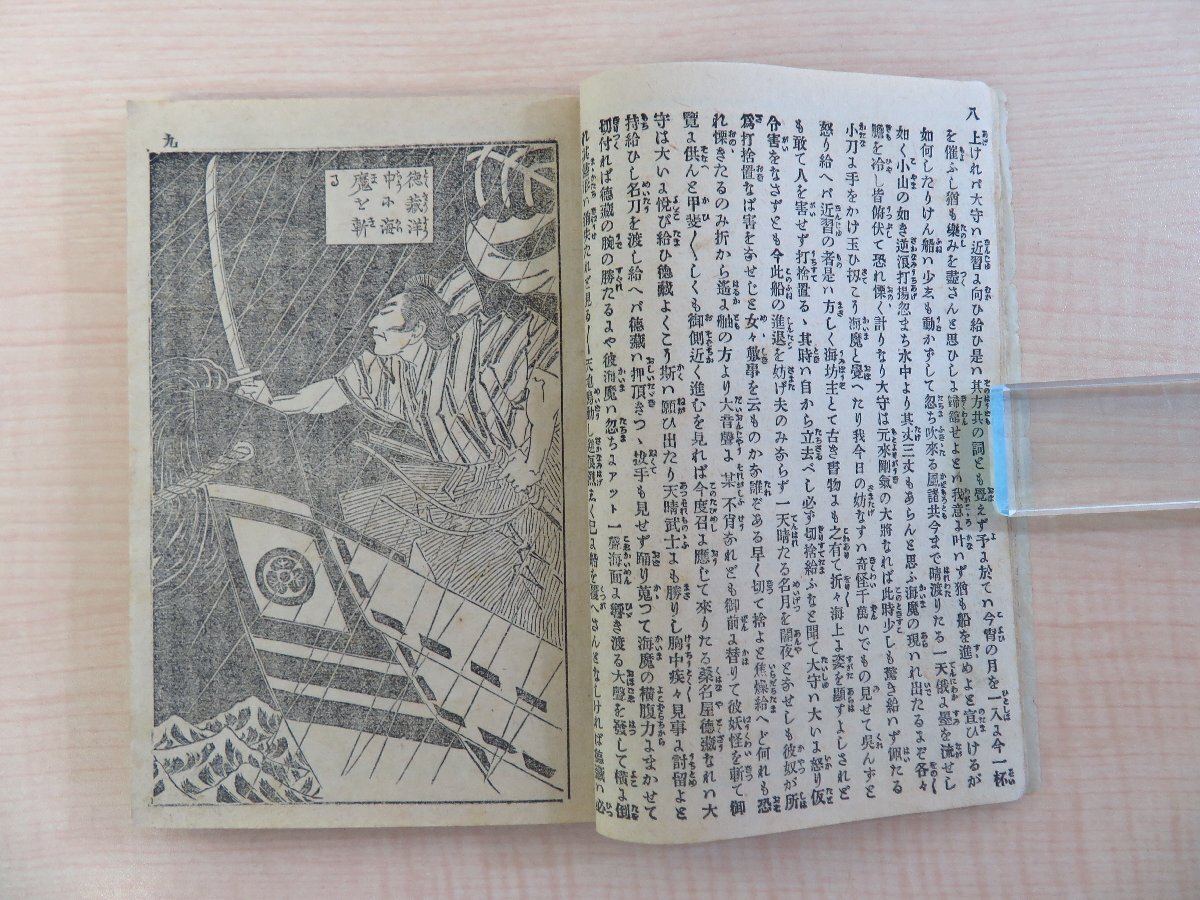 八
上けれバ大守ハ近習よ向ひ給ひ是ハ其方共の詞とも覺えず予よ於てハ今宵の月を一入よ今一杯
を催ふし猶も樂みを盡さんと思ひしよ歸舘せよとハ我意よ叶ハず猶も船を進めよと宣ひけるが
如何したりけん船ハ少しも動かずして忽ち吹來る風諸共今まで晴渡りたる一天俄よ墨を流せし
如く小山の如き逆浪打揚忽まち水中より其丈三丈もあらんと思ふ海魔の現ハれ出たるよぞ各々
膽を冷し皆俯伏て恐れ慄く計りなり大守ハ元來剛氣の大將なれば此時少しも驚き給ハず佩たる
小刀よ手をかけ玉ひ扨こそ海魔と覺へたり我今日の妨なすハ奇怪千萬いでもの見せて呉んずと
怒り給へバ近習の者是ハ方しく海坊主とて古き書物よも之有て折々海上よ姿を顯すよしされど
も敢て人を害せず打捨置る、其時ハ自から立去べし必ず切捨給ふなと聞て大守ハ大いよ怒り仮
令害をなさずとも今此船の進退を妨げ夫のみならず一天晴たる名月を闇夜となせしも彼奴が所
爲打捨置なば害をなせじと女々敷事を云ものかな誰ぞある早く切て捨よと焦燥給へど何れも恐
れ慄きたるのみ折から遙よ舳の方より大音聲よ某し不肖なれども御前よ替りて彼妖怪を斬て御
覽よ供んと甲斐〲しくも御側近く進むを見れば今度召よ應じて來りたる桑名屋德藏なれバ大
守は大いよ悦び給ひ德藏よくこそ斯ハ願ひ出たり天晴武士よも勝りし胸中疾々見事よ討留よと
持給ひし名刀を渡し給へバ德藏ハ押頂きつ、投手も見せず踊り蒐つて海魔の横腹力よまかせて
切付れば德藏の腕の勝たるよや彼海魔ハ忽ちよアット一聲海面よ響き渡る大聲を發して横よ倒
九
德藏洋
中に海
魔を斬
る